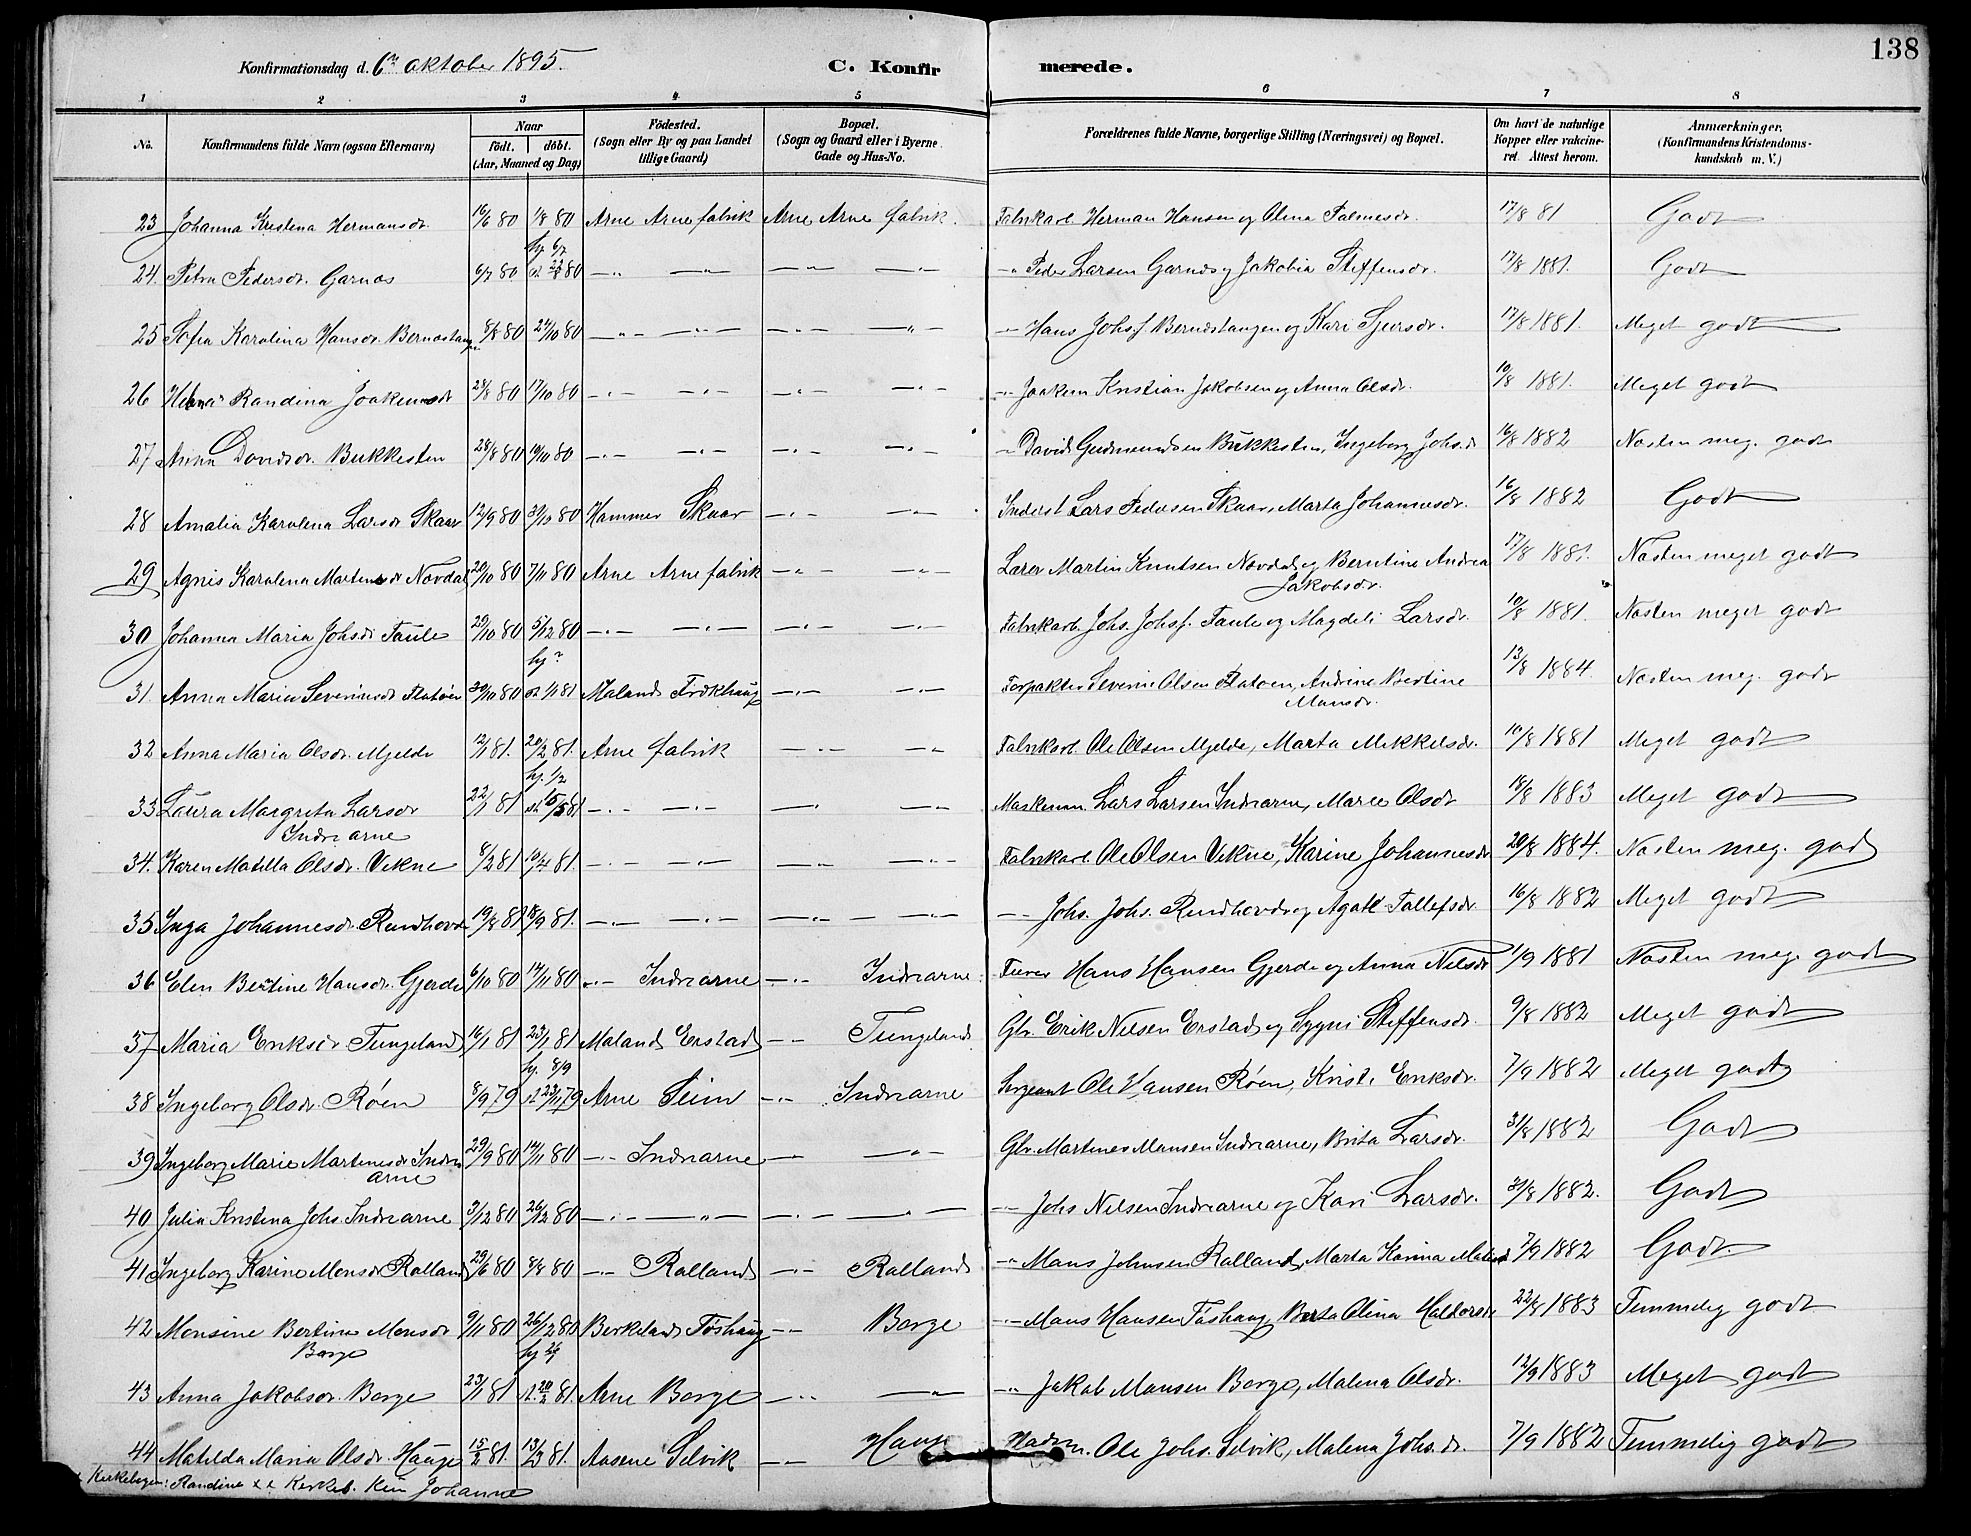 138
Konfirmationsdag d. 6te oktober 1895.
C. Konfirmerede.
1 2 3 4 5 6 7 8
No. Konfirmandens fulde Navn (ogsaa Efternavn) Naar födt. döbt. (Aar, Maaned og Dag) Födested. (Sogn eller By og paa Landet tillige Gaard) Bopæl. (Sogn og Gaard eller i Byerne Gade og Hus-No. Forældrenes fulde Navne, borgerlige Stilling (Næringsvei) og Bopæl. Om havt de naturlige Kopper eller vakcineret. Attest herom. Anmærkninger. (Konfirmandens Kristendomskundskab m. V.)
23 Johanna Kristina Hermansdr. 16/6 80 1/8 80 Arne Arne fabrik Arne Arne fabrik. Fabrikarb. Herman Hansen og Olina Salmesdr. 17/8 81 Godt
24. Petra Pedersdr. Garnæs 6/7 80 hj. 6/7 st. 22/8 80 —"— —"— —"— —"— —"— Peder Larsen Garnæs og Jakobia Steffensdr. 17/8 1881. Godt
25 Sofia Karolina Hansdr. Bernæstangen 8/8 80 24/10 80 —"— —"— —"— —"— —"— Hans Johs. Bernæstangen og Kari Sjursdr. 17/8 1881. Meget godt
26 Helena Randina Joakemsdr 24/8 80 17/10 80 —"— —"— —"— —"— —"— Joakem Kristian Jakobsen og Anna Olsdr. 10/8 1881. Meget godt
27 Anna Davidsdr. Bukkesten 28/8 80 10/10 80 —"— —"— —"— —"— —"— David Gudmundsen Bukkesten, Ingeborg Johs.dr 16/8 1882 Næsten meg. godt
28 Amalia Karolena Larsdr Skaar 12/9 80 31/10 80 Hammer Skaar —"— —"— Inderst Lars Pedersen Skaar, Marta Johannesdr. 16/8 1882 Godt
29 Agnis Karolena Martensdr Novdal 20/10 80 7/11 80 Arne Arne fabrik —"— —"— Lærer Martin Knutsen Novdal og Berntine Andrea Jakobsdr. 17/8 1881. Næsten meget godt
30 Johanna Maria Johsdr Taule 29/10 80 5/12 80 —"— —"— —"— —"— Fabrikarb. Johs. Johs. Taule og Magdeli Larsdr. 10/8 1881. Næsten meget godt
31. Anna Maria Severinsdr Flatøen 30/10 80 hj. ? st. 1/1 81 Maland Frøkhaug —"— —"— Forpakter Severin Olsen Flatøen, Andrine Bertine Mansdr. 13/8 1884. Næsten meg. godt
32 Anna Maria Olsdr. Mjelde 12/1 81. 20/2 81. Arne fabrik —"— —"— Fabrikarb. Ole Olsen Mjelde, Marta Mikkelsdr. 10/8 1881 Meget godt
33 Laura Margreta Larsdr Indrearne 22/1 81 hj. 1/2 st. 15/5 81 —"— —"— —"— —"— Maskinm. Lars Larsen Indrearne, Maree Olsdr 18/8 1883 Meget godt
34. Karen Matilla Olsdr. Vekne 8/2 81 10/4 81. —"— —"— —"— —"— Fabrikarb. Ole Olsen Vekne, Karine Johannesdr 20/8 1884. Næsten meg. godt
35 Inga Johannesdr. Rundhovde 19/8 81 18/9 81. —"— —"— —"— —"— —"— Johs. Johs. Rundhovde og Agate Tollefsdr. 16/8 1882 Meget godt
36 Elen Bertine Hansdr. Gjerde 6/10 80 14/11 80 —"— Indrearne —"— Indrearne Farver Hans Hansen Gjerde og Anna Nilsdr 1/9 1881 Næsten meg. godt
37 Maria Eriksdr Tungeland 16/1 81 23/1 81 Maland Erstad —"— Tungeland Gbr. Erik Nilsen Erstad og Sygni Steffensdr. 9/8 1882 Meget godt
38 Ingeborg Olsdr. Röen 8/9 79 hj. 8/9 st 23/11 79 Arne Seim —"— Indrearne Sergeant Ole Hansen Röen, Kristi Eriksdr. 7/9 1882 Meget godt
39 Ingeborg Marie Martinesdr Indrearne 29/9 80 14/11 80 —"— Indrearne —"— —"— Gbr. Martines Mansen Indrearne, Brita Larsdr. 31/8 1882 Godt
40 Julia Kristina Johs. Indrearne 3/12 80 26/12 80 —"— —"— —"— —"— —"— Johs Nilsen Indrearne og Kari Larsdr. 31/8 1882. Godt
41 Ingeborg Karine Monsdr Rolland 29/6 80 8/8 80 —"— Rolland —"— Rolland —"— Mans Johnsen Rolland, Marta Karina 7/9 1882 Godt.
42 Monsine Bertine Monsdr Borge 9/11 80 26/12 80 Birkeland Töshaug —"— Borge —"— Mans Hansen Töshaug, Berta Olina Haldorsdr 22/8 1883 Temmelig godt
43 Anna Jakobsdr. Borge 23/1 81 hj. st. 20/2 81. Arne Borge —"— —"— —"— Jakob Mansen Borge, Malena Olsdr. 12/9 1883 Meget godt
44 Matilda Maria Olsdr. Hauge 15/2 81. 13/3 81. Aasene Selvik —"— Hauge Ole Johs. Selvik, Malena Johs.dr. 7/9 1882 Temmelig godt
x Kirkebogen: Randine x x Kirkeb. Kun Johanne